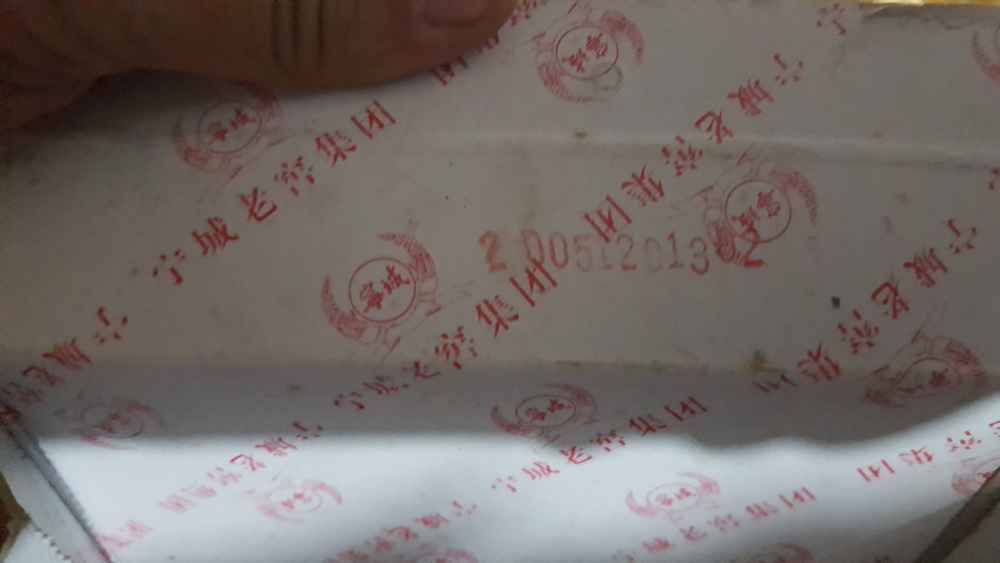 宁城
宁城
宁城老窖集团
宁城老窖集团
宁城
宁城
20051201
宁城老窖集团
宁城老窖集团
宁城老窖
宁城
宁城老窖集团
宁城老窖集团
宁城